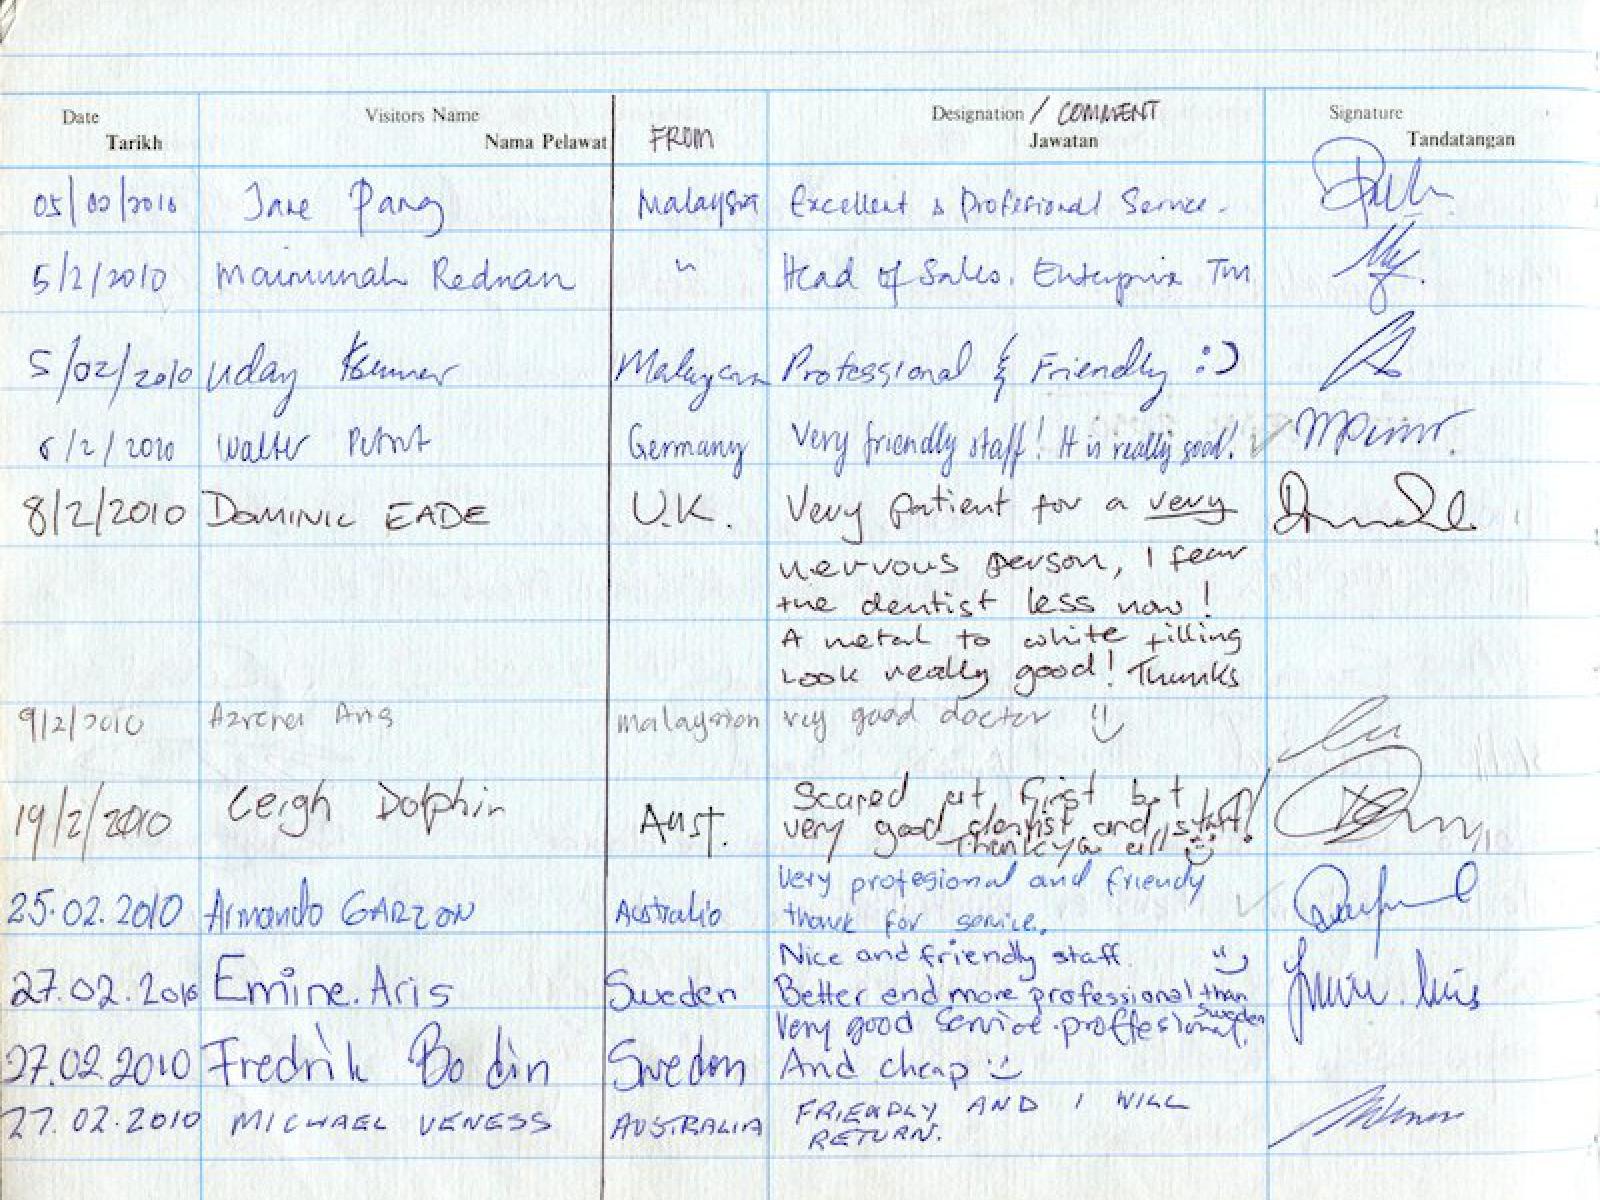 Date Visitors Name Designation / COMMENT Signature
Tarikh Nama Pelawat FROM Jawatan Tandatangan
05/02/2010 Jane Pang Malaysia Excellent & Profesional Service.
5/2/2010 Maimunah Rednan " Head of Sales, Enterprise TM
5/02/2010 Uday Malaysian Professional & Friendly :)
6/2/2010 Walter Germany Very friendly staff! It is really good!
8/2/2010 DOMINIC EADE U.K. Very patient for a very
nervous person, I fear
the dentist less now!
A metal to white filling
Look really good! Thanks
9/2/2010 malaysian very good doctor
19/2/2010 Leigh Dolphin Aust. Scared at first but
very good dentist and staff!
Thankyou all
25.02.2010 Armando GARZON Australia Very profesional and friendy
thank for service.
27.02.2010 Emine.Aris Sweden Nice and friendly staff.
Better and more professional than
Sweden
27.02.2010 Fredrik Bodin Sweden Very good Service.proffesional.
And cheap
27.02.2010 MICHAEL VENESS AUSTRALIA FRIENDLY AND I WILL
RETURN.